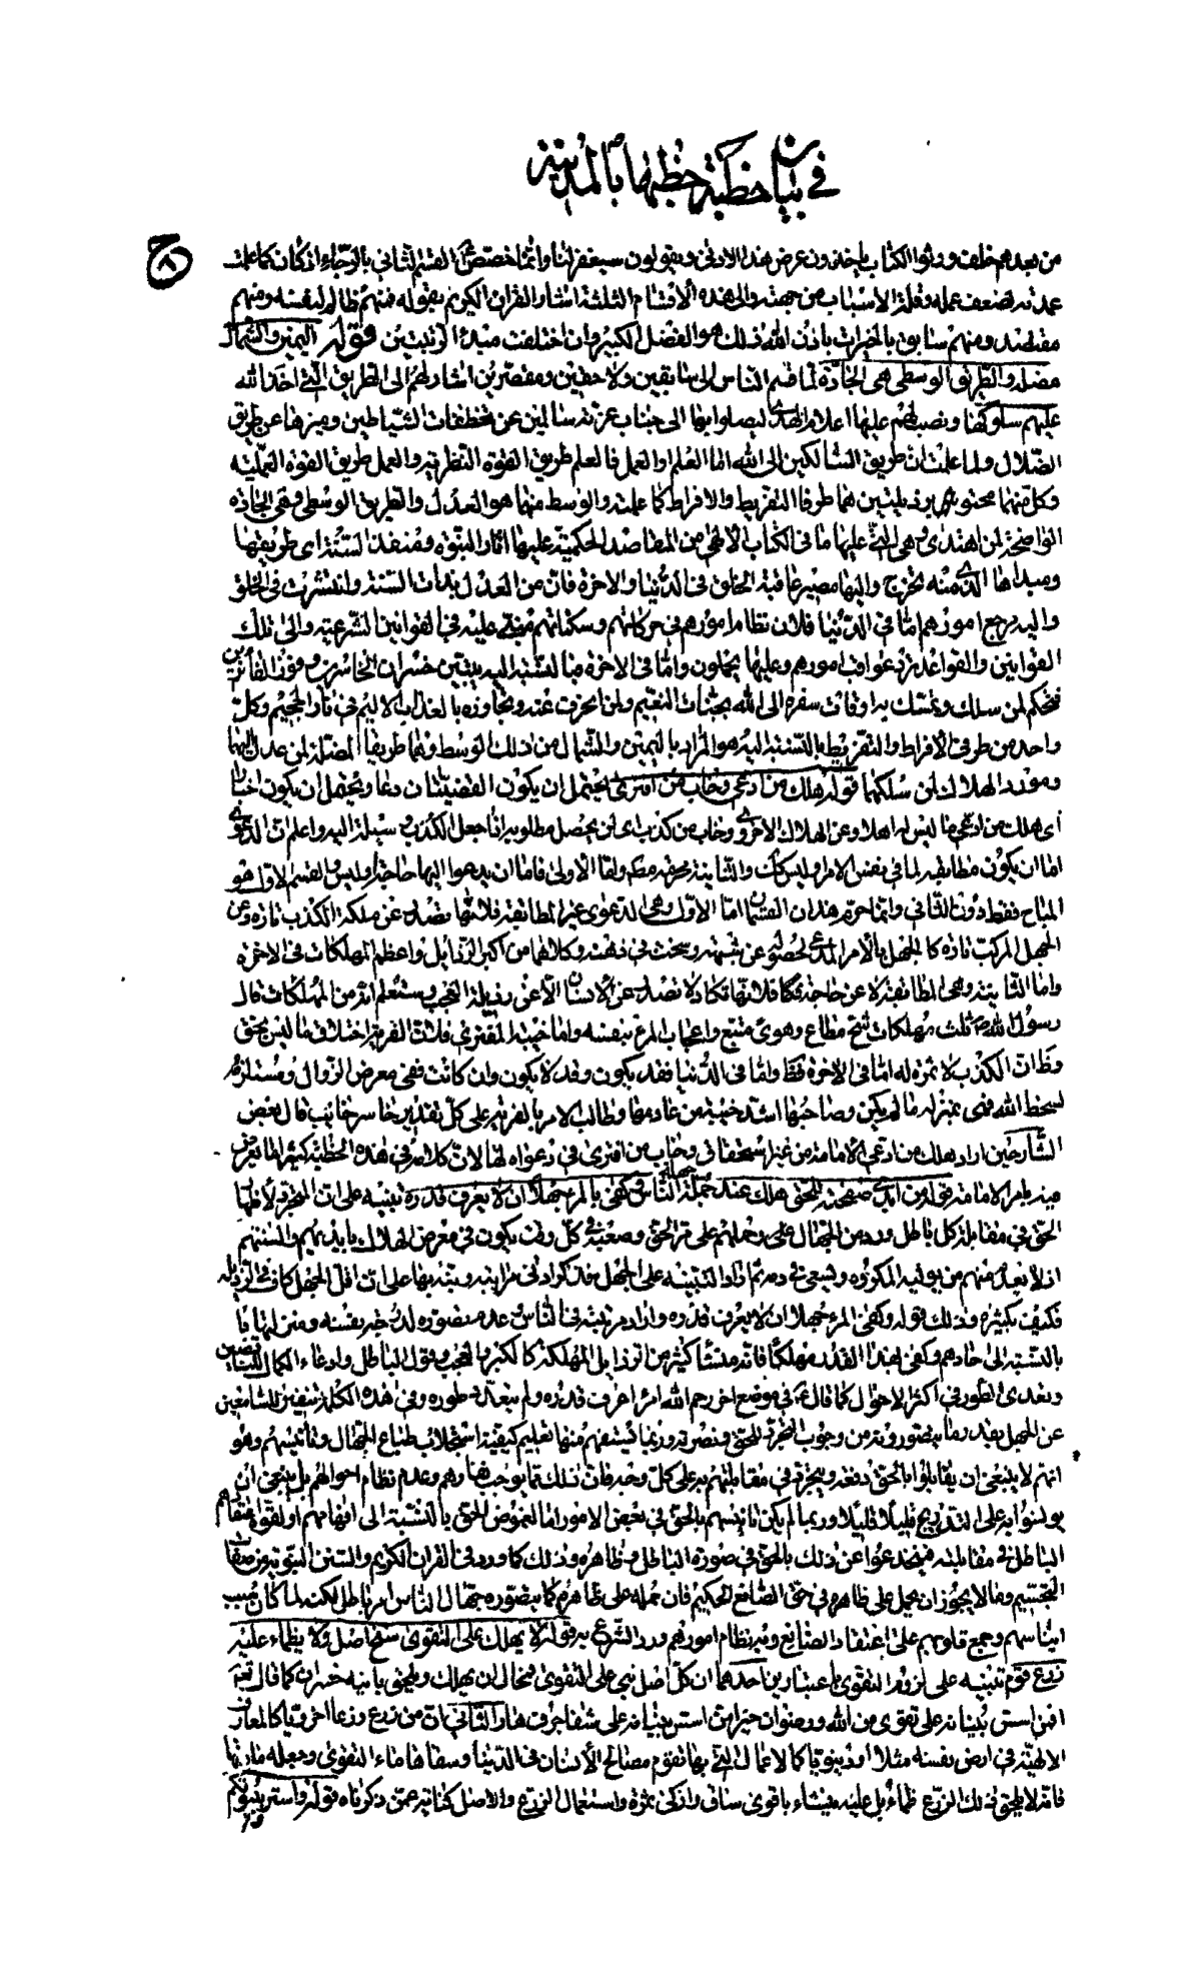 في بيان خطبة خطبها بالمدينة
ج ٨
من بعدهم خلف ورثوا الكتاب ياخذون عرض هذا الادنى ويقولون سيغفر لنا وانما خصّص القسم الثاني بالرّجاء اذ كان كما علمت
عمدته لضعف عمله وقلة الاسباب من جهته والى هذه الاقسام الثلثة اشار القران الكريم بقوله فمنهم ظالم لنفسه ومنهم
مقتصد ومنهم سابق بالخيرات باذن الله ذلك هو الفضل الكبير وان اختلفت مبدء الرتبتين قوله اليمين والشمال
مضلة والطريق الوسطى هي الجادّة لما قسم الناس الى سابقين ولاحقين ومقصرين اشار لهم الى الطريق التي اخذ الله
عليهم سلوكها ونصب لهم عليها اعلام الهدى ليصلوا بها الى جناب عزته سالمين عن تخطفات الشياطين وميزها عن طريق
الضلال ولما علمت ان طريق السالكين الى الله اما العلم او العمل فالعلم طريق القوة النظرية والعمل طريق القوة العملية
وكل منهما محتو برذيلتين هما طرفا التفريط والافراط كما علمت والوسط منهما هو العدل والطريق الوسطى وهى الجادة
الواضحة لمن اهتدى وهى التى عليها ما فى الكتاب الالهى من المقاصد الحكمية عليها اثار النبوة ومنفذ السنة اى طريقها
ومبداها الذى منه تخرج واليها مصير عاقبة الخلق فى الدنيا والاخرة فان من العدل بدات السنة وانتشرت فى الخلق
واليه مرجع امورهم اما فى الدنيا فلان نظام امورهم فى حركاتهم وسكناتهم مبنى عليه فى القوانين الشرعية والى تلك
القوانين والقواعد يرد عواقب امورهم وعليها يحملون واما فى الاخرة فبالنسبة اليه يتبين خسران الخاسرين وفوز الفائزين
فيحكم لمن سلك وتمسك به اوقات سفره الى الله بجنات النعيم ولمن انحرف عنه وتجاوزه بالعذاب الاليم فى نار الجحيم وكل
واحد من طرفى الافراط والتفريط بالنسبة اليه هو المراد باليمين والشمال من ذلك الوسط وهما طريقا المضلة لمن عدل اليهما
ومورد الهلاك لمن سلكهما قوله هلك من ادعى وخاب من افترى يحتمل ان يكون القضيتان دعاء ويحتمل ان يكون اخبارا
اى هلك من ادعى ما ليس له اهلا وعن الهلاك الاخروى وخاب من كذب اى لن يحصل مطلوبه اذا جعل الكذب وسيلة اليه واعلم ان الدعوى
اما ان يكون مطابقة لما فى نفس الامر او ليس كك والثانية محرمة مطلقا والاولى فاما ان يدعو اليها حاجة او ليس والقسم الاول هو
المباح فقط دون الثانى وانما حرم هذان القسمان اما الاول وهى الدعوى غير المطابقة فلانها تصدر عن ملكة الكذب تارة وعن
الجهل المركب تارة كالجهل بالامر المدعى لحصوله عن شبهة رسخت فى ذهنه وكلاهما من اكبر الرذايل واعظم المهلكات فى الاخرة
واما الثانية وهى المطابقة لا عن حاجة فلانها تكاد لا تصدر عن الانسان الا عن رذيلة العجب وستعلم انه من المهلكات قال
رسول الله ص ثلث مهلكات شح مطاع وهوى متبع واعجاب المرء بنفسه واما خيبة المفترى فلان الفرية اختلاق ما ليس بحق
وظ ان الكذب لا ثمرة له اما فى الاخرة فظ واما فى الدنيا فقد يكون وقد لا يكون وان كانت ففى معرض الزوال ومستلزمة
لسخط الله فهى بمنزلة ما لم يكن وصاحبها اشد خيبة من عادمها وطالب الامر بالفرية على كل تقدير خاسر خائب قال بعض
الشارحين اراد هلك من ادعى الامامة من غير استحقاق وخاب من افترى فى دعواه لها لان كلامه فى هذه الخطبة كثيرا ما يعرض
فيه بامر الامامة قوله من ابدى صفحته للحق هلك عند جهلة الناس وكفى بالمرء جهلا ان لا يعرف قدره تنبيه على ان المتجرد لاظهار
الحق فى مقابلة كل باطل ورد من الجهال على وحملهم على مر الحق وصعبه فى كل وقت يكون فى معرض الهلاك بايديهم والسنتهم
اذ لا يعدم منهم من يوليه المكروه ويسعى فى دمه ثم اراد التنبيه على الجهل فذكر ادنى مراتبه ونبه بها على ان اقل الجهل كاف فى الرذيلة
فكيف بكثيره وذلك قوله وكفى بالمرء جهلا ان لا يعرف قدره واراد مرتبته فى الناس وعدم تصوره لدرجة نفسه ومنزلتها
بالنسبة الى احادهم وكفى بهذا القدر مهلكا فانه منشأ كثير من الرذايل المهلكة كالكبر والعجب وقول الباطل وادعاء الكمال للناقصين
وتعدى الطور فى اكثر الاحوال كما قال ع فى موضع اخر رحم الله امرا عرف قدره ولم يتعد طوره وفى هذه الكلمة تنفير للسامعين
عن الجهل بقدر ما يتصورونه من وجوب التجرد للحق ونصرته وربما يستفهم منها تعليم كيفية استجلاب طباع الجهال وتانيسهم وهو
انهم لا ينبغى ان يقابلوا بالحق دفعة ويتجرد فى مقابلتهم به على كل وجه فان ذلك مما يوجب نفارهم وعدم نظام احوالهم بل ينبغى ان
يونسوا به على التدريج قليلا قليلا وربما لم يكن تانيسهم بالحق فى بعض الامور اما لغموض الحق بالنسبة الى افهامهم او لقوة اعتقادهم
الباطل فى مقابلته فيخدعوا عن ذلك بالحق فى صورة الباطل وظاهره وذلك كما ورد فى القران الكريم والسنن النبوية من صفات
التجسيم وما لا يجوز ان يحمل على ظاهره فى حق الصانع الحكيم فان حمله على ظاهره كما يتصوره جهال الناس امر باطل لكنه لما كان سبب
ايناسهم وجمع قلوبهم على اعتقاد الصانع وبه نظام امورهم ورد الشرع به قوله لا يهلك على التقوى سنخ اصل ولا يظماء عليه
زرع قوم تنبيه على لزوم التقوى باعتبارين احدهما ان كل اصل بنى على التقوى فمحال ان يهلك ويلحق بانيه خسران كما قال تعه
افمن اسس بنيانه على تقوى من الله ورضوان خير ام من اسس بنيانه على شفا جرف هار الثانى ان من زرع زرعا اخرويا كالمعارف
الالهية فى ارض نفسه مثلا او دنيويا كالاعمال التى بها تقوم مصالح الانسان فى الدنيا وسقاها ماء التقوى وجعله مادتها
فانه لا يلحق ذلك الزرع ظماء بل عليه ينشاء باقوى ساق وازكى ثمرة واستعمال الزرع والاصل كناية عمن ذكرناه قوله واستتروا ببيوتكم